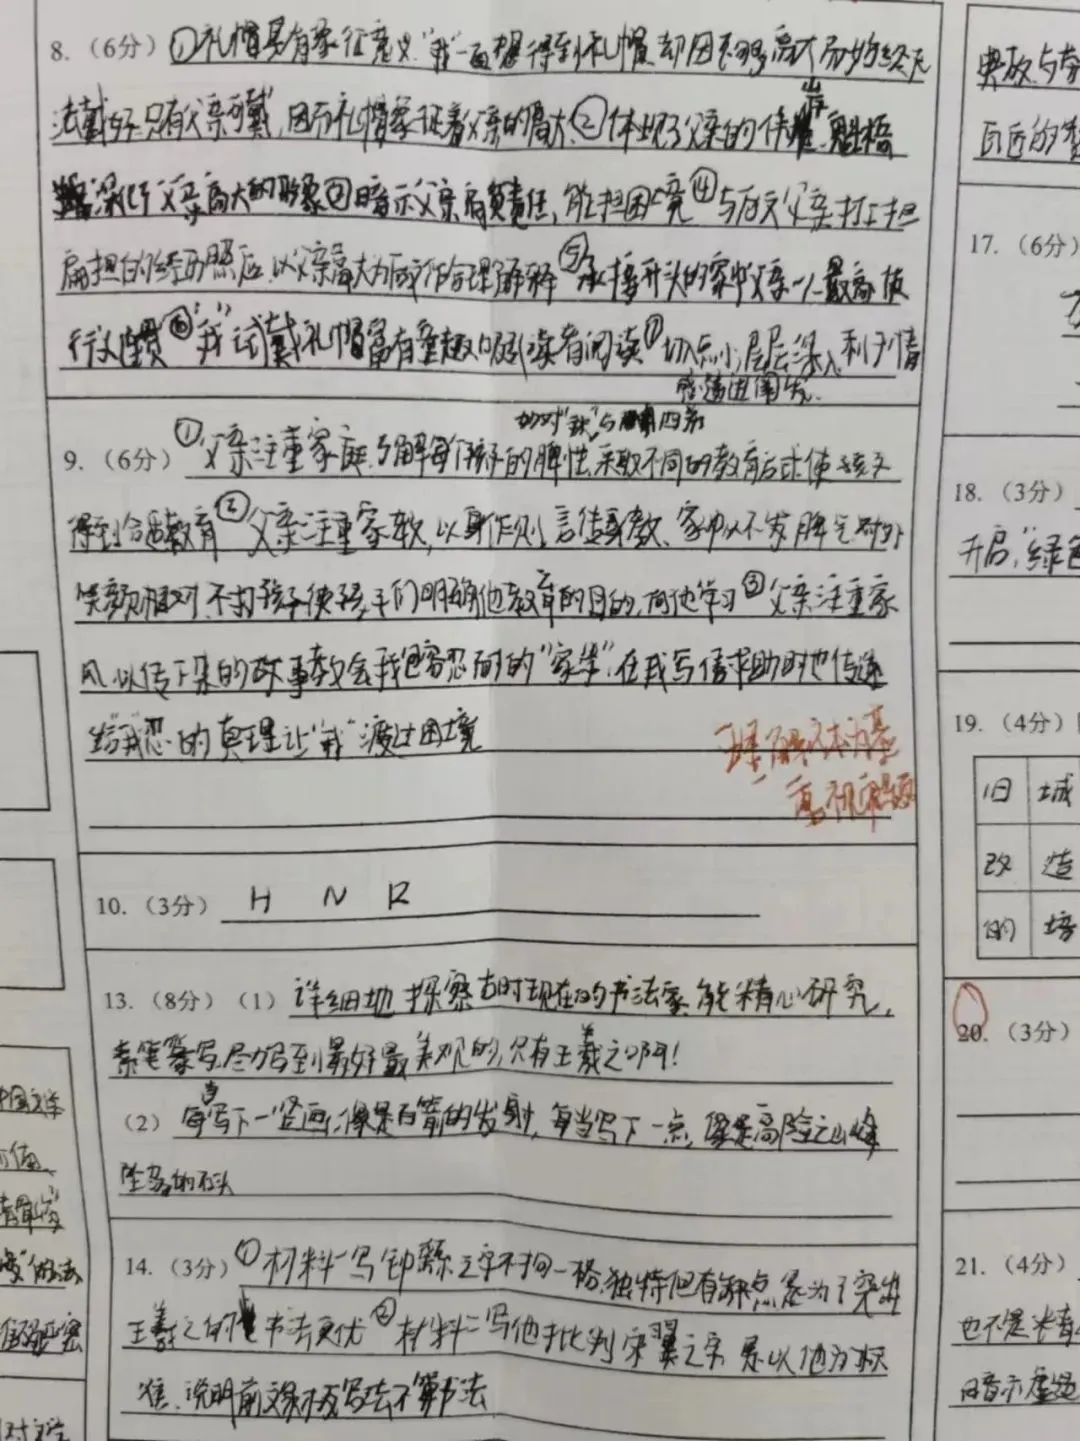 8.（6分）①礼帽具有象征意义."我"一直想得到礼帽却因不够高大而始终无
法戴好只有父亲可戴,因而礼帽象征着父亲的高大.②体现了父亲的伟岸、魁梧
深化了父亲高大的形象③暗示父亲肩负责任,能担困境④与后文父亲打上担
扁担的经历照应,以父亲高大为后文作合理解释⑤承接开头的家中父亲一人最高使
行文连贯⑥"我"试戴礼帽富有童趣吸引读者阅读⑦切点小,层层深入利于情
感递进阐发.
如对"我"与四弟
9.（6分）①父亲注重家庭,了解每个孩子的脾性,采取不同的教育方式使孩子
得到合适教育②父亲注重家教,以身作则,言传身教、家中从不发脾气对外
笑颜相对,不打孩子使孩子们明确他教育的目的,向他学习③父亲注重家
风以传下来的故事教会我包容忍耐的"家学",在我写信求助时也传递
给"我"忍的真理让"我"渡过困境
10.（3分） H N R
13.（8分）（1）详细地探察古时现在的书法家,能精心研究,
篆写,尽力写到最好最美观的,只有王羲之啊!
（2）每当写下一竖画,像是百箭的发射,每当写下一点,像是高险之山峰
坠落的石头
14.（3分）①材料一写钟繇之字不同一格,独特但有缺点是为了突出
王羲之的书法更优②材料二写他批判宋翼之字是以他为标
准,说明前文呆板写法不算书法
典故与
百匠的
17.（6分）
18.（3分）
开启,"绿色
19.（4分）
旧 城
改 造
的 培
20.（3分）
21.（4分）
也不是
暗示虚